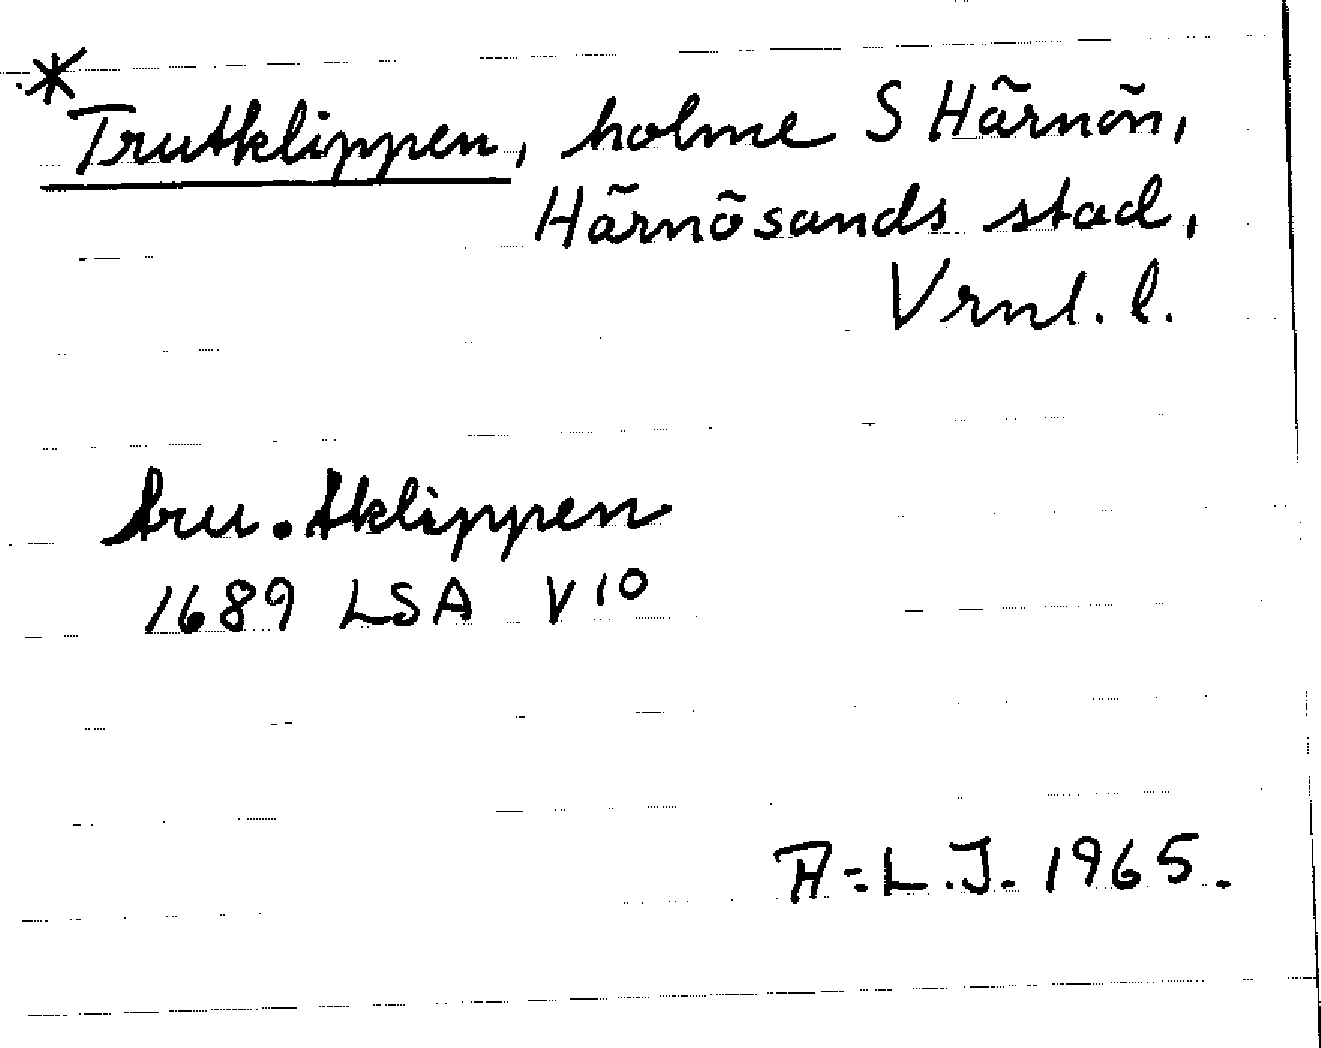 * Trutklippen, holme S Härnön,
Härnösands stad,
Vrnl. l.
tru.tklippen
1689 LSA V 10
A-L.J. 1965.